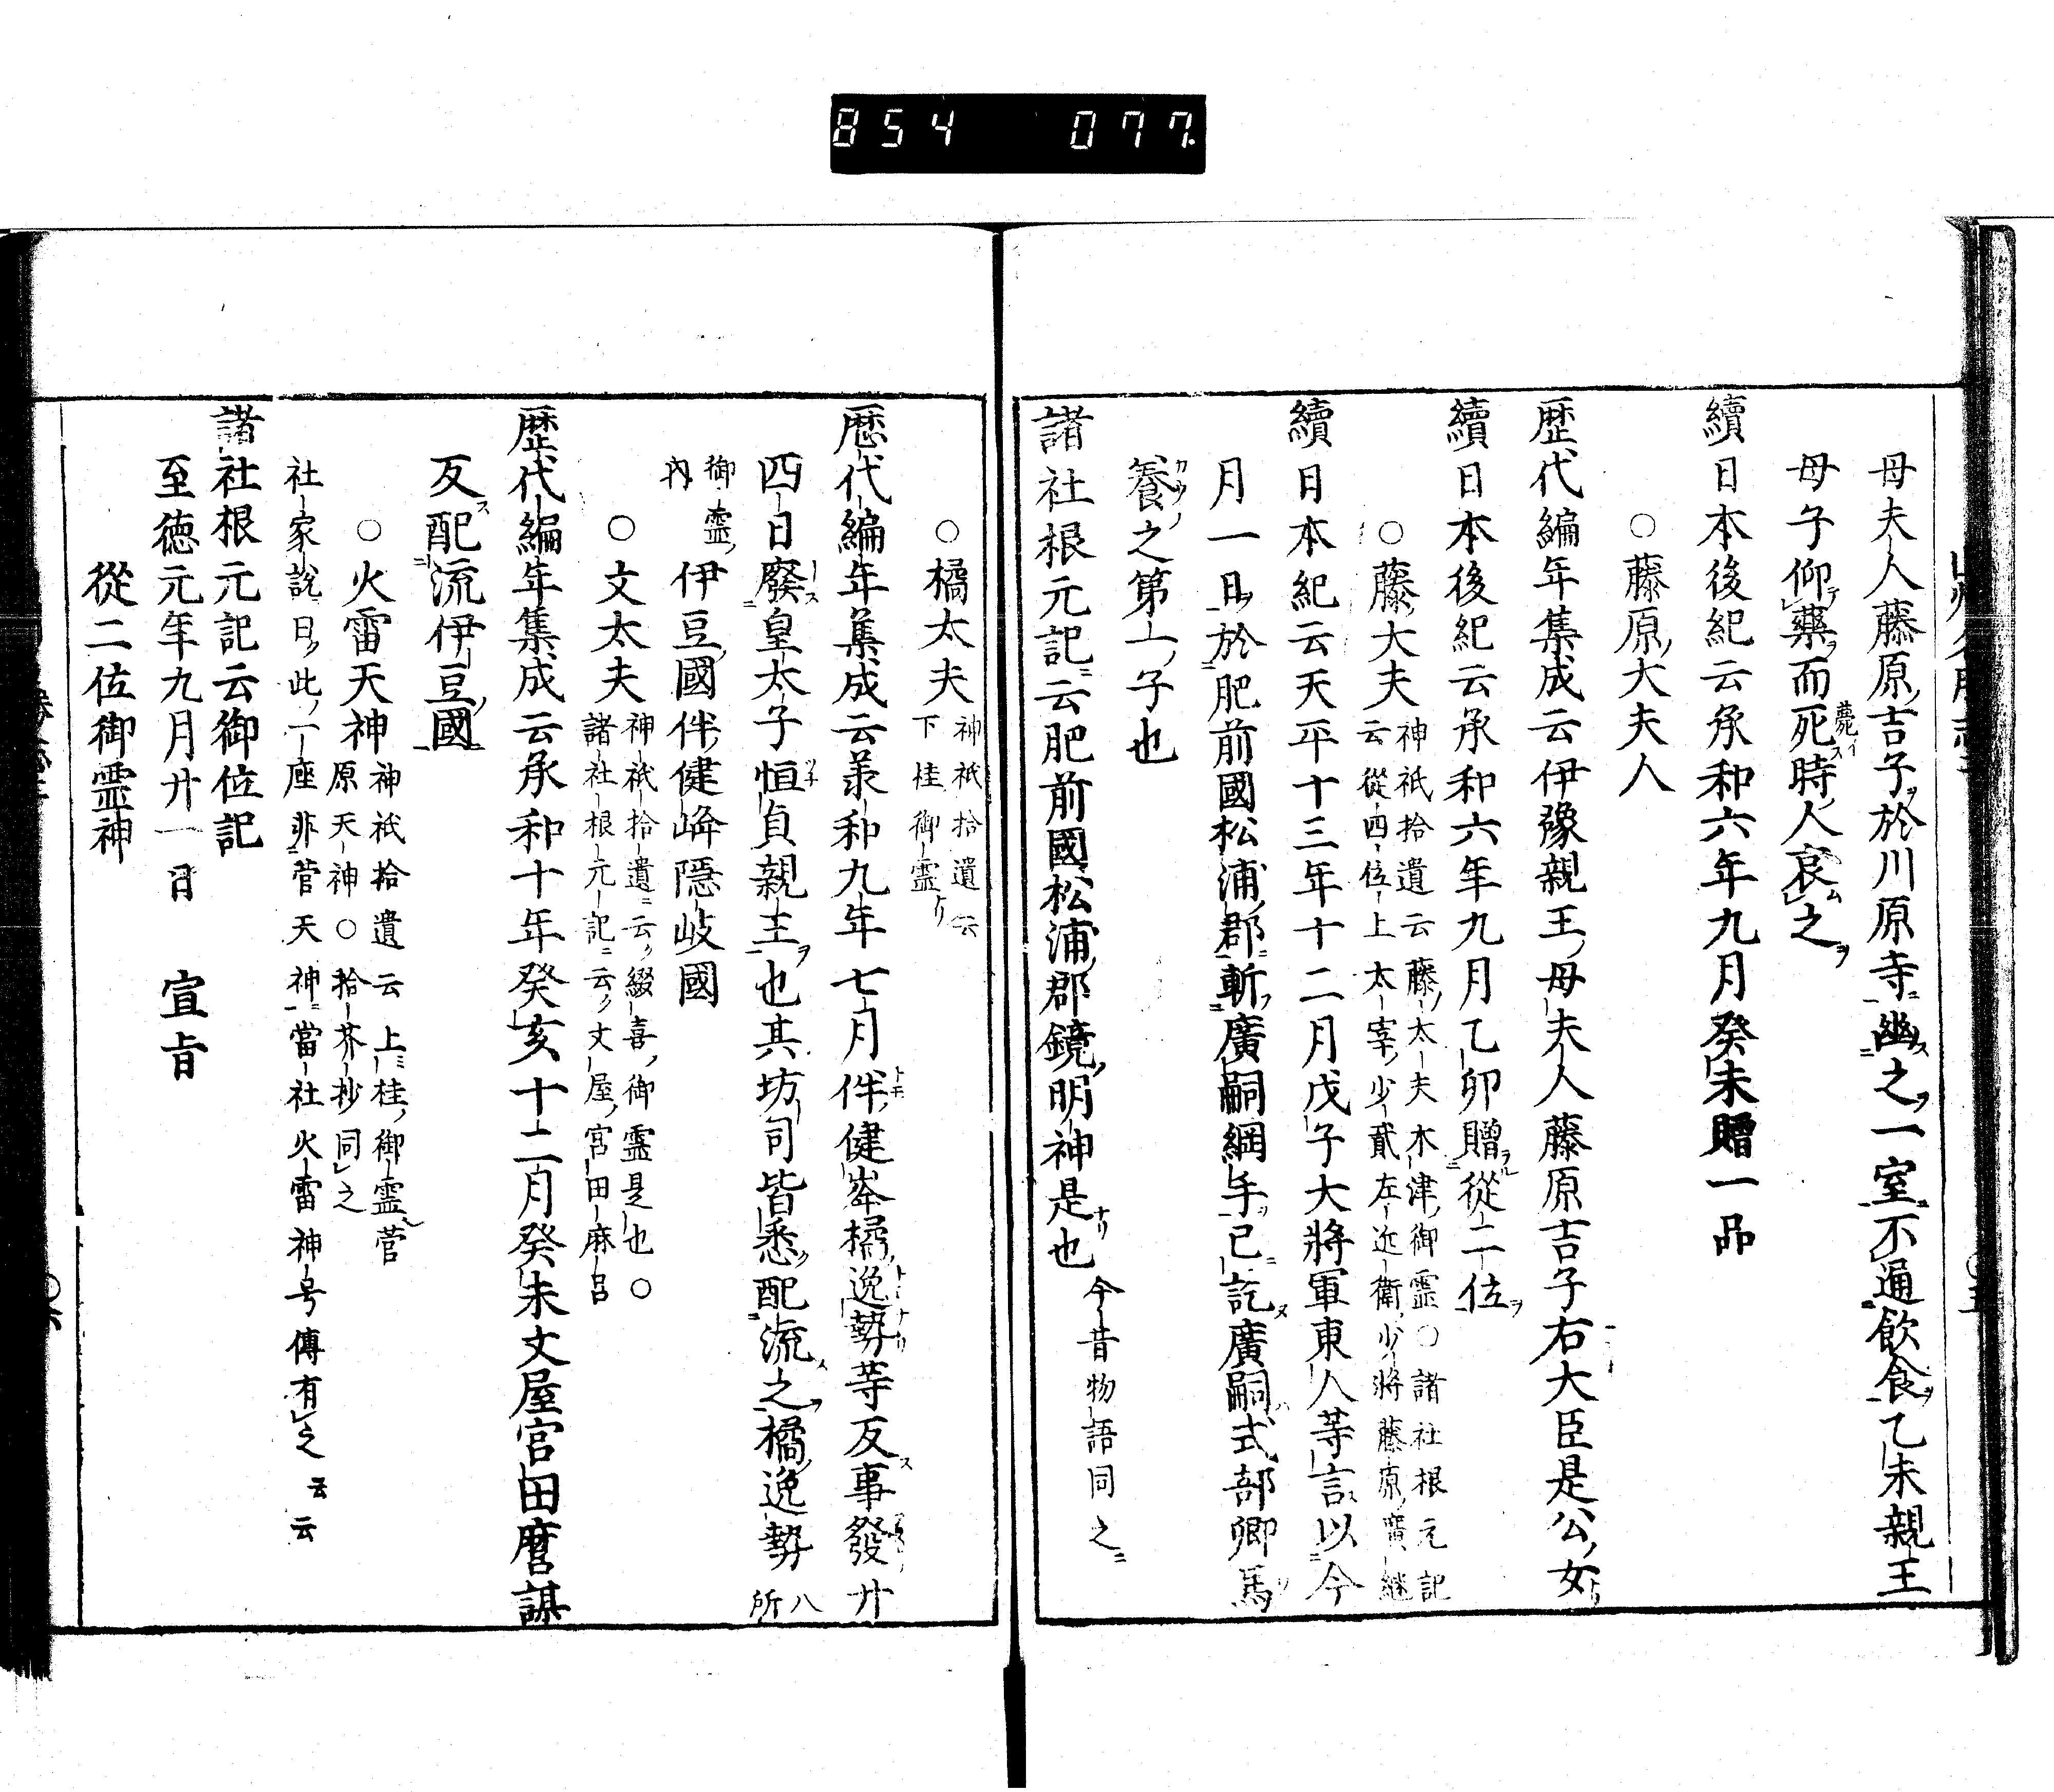 854 077.
母夫人藤原吉子於川原寺幽之一室不通飲食乙未親王
母子仰藥而死時人哀之
續日本後紀云承和六年九月癸未贈一品
○藤原大夫人
歷代編年集成云伊豫親王母夫人藤原吉子右大臣是公女
續日本後紀云承和六年九月乙卯贈從二位
○藤大夫
神祇拾遺云藤太夫木津御靈○諸社根元記
云從四位上太宰少貳左近衛少將藤原廣継
續日本紀云天平十三年十二月戊子大將軍東人等言以今
月一日於肥前國松浦郡斬廣嗣綱手已訖廣嗣式部卿馬
養之第一子也
諸社根元記云肥前國松浦郡鏡明神是也
今昔物語同之
○橘太夫
神祇拾遺云
下桂御霊
歷代編年集成云羕和九年七月伴健岑橘逸勢等反事發廿
四日廢皇太子恒貞親王也其坊司皆悉配流之橘逸勢
八
所
御靈
內
伊豆國伴健岑隱岐國
○文太夫
神祇拾遺云綴喜御霊是也○
諸社根元記云文屋宮田麻呂
歷代編年集成云承和十年癸亥十二月癸未文屋宮田麿謀
反配流伊豆國
○火雷天神
神祇拾遺云上桂御霊菅
原天神○拾芥抄同之
社家說曰此一座非菅天神當社火雷神号傳有之云云
諸社根元記云御位記
至徳元年九月廿一日 宣旨
從二位御霊神